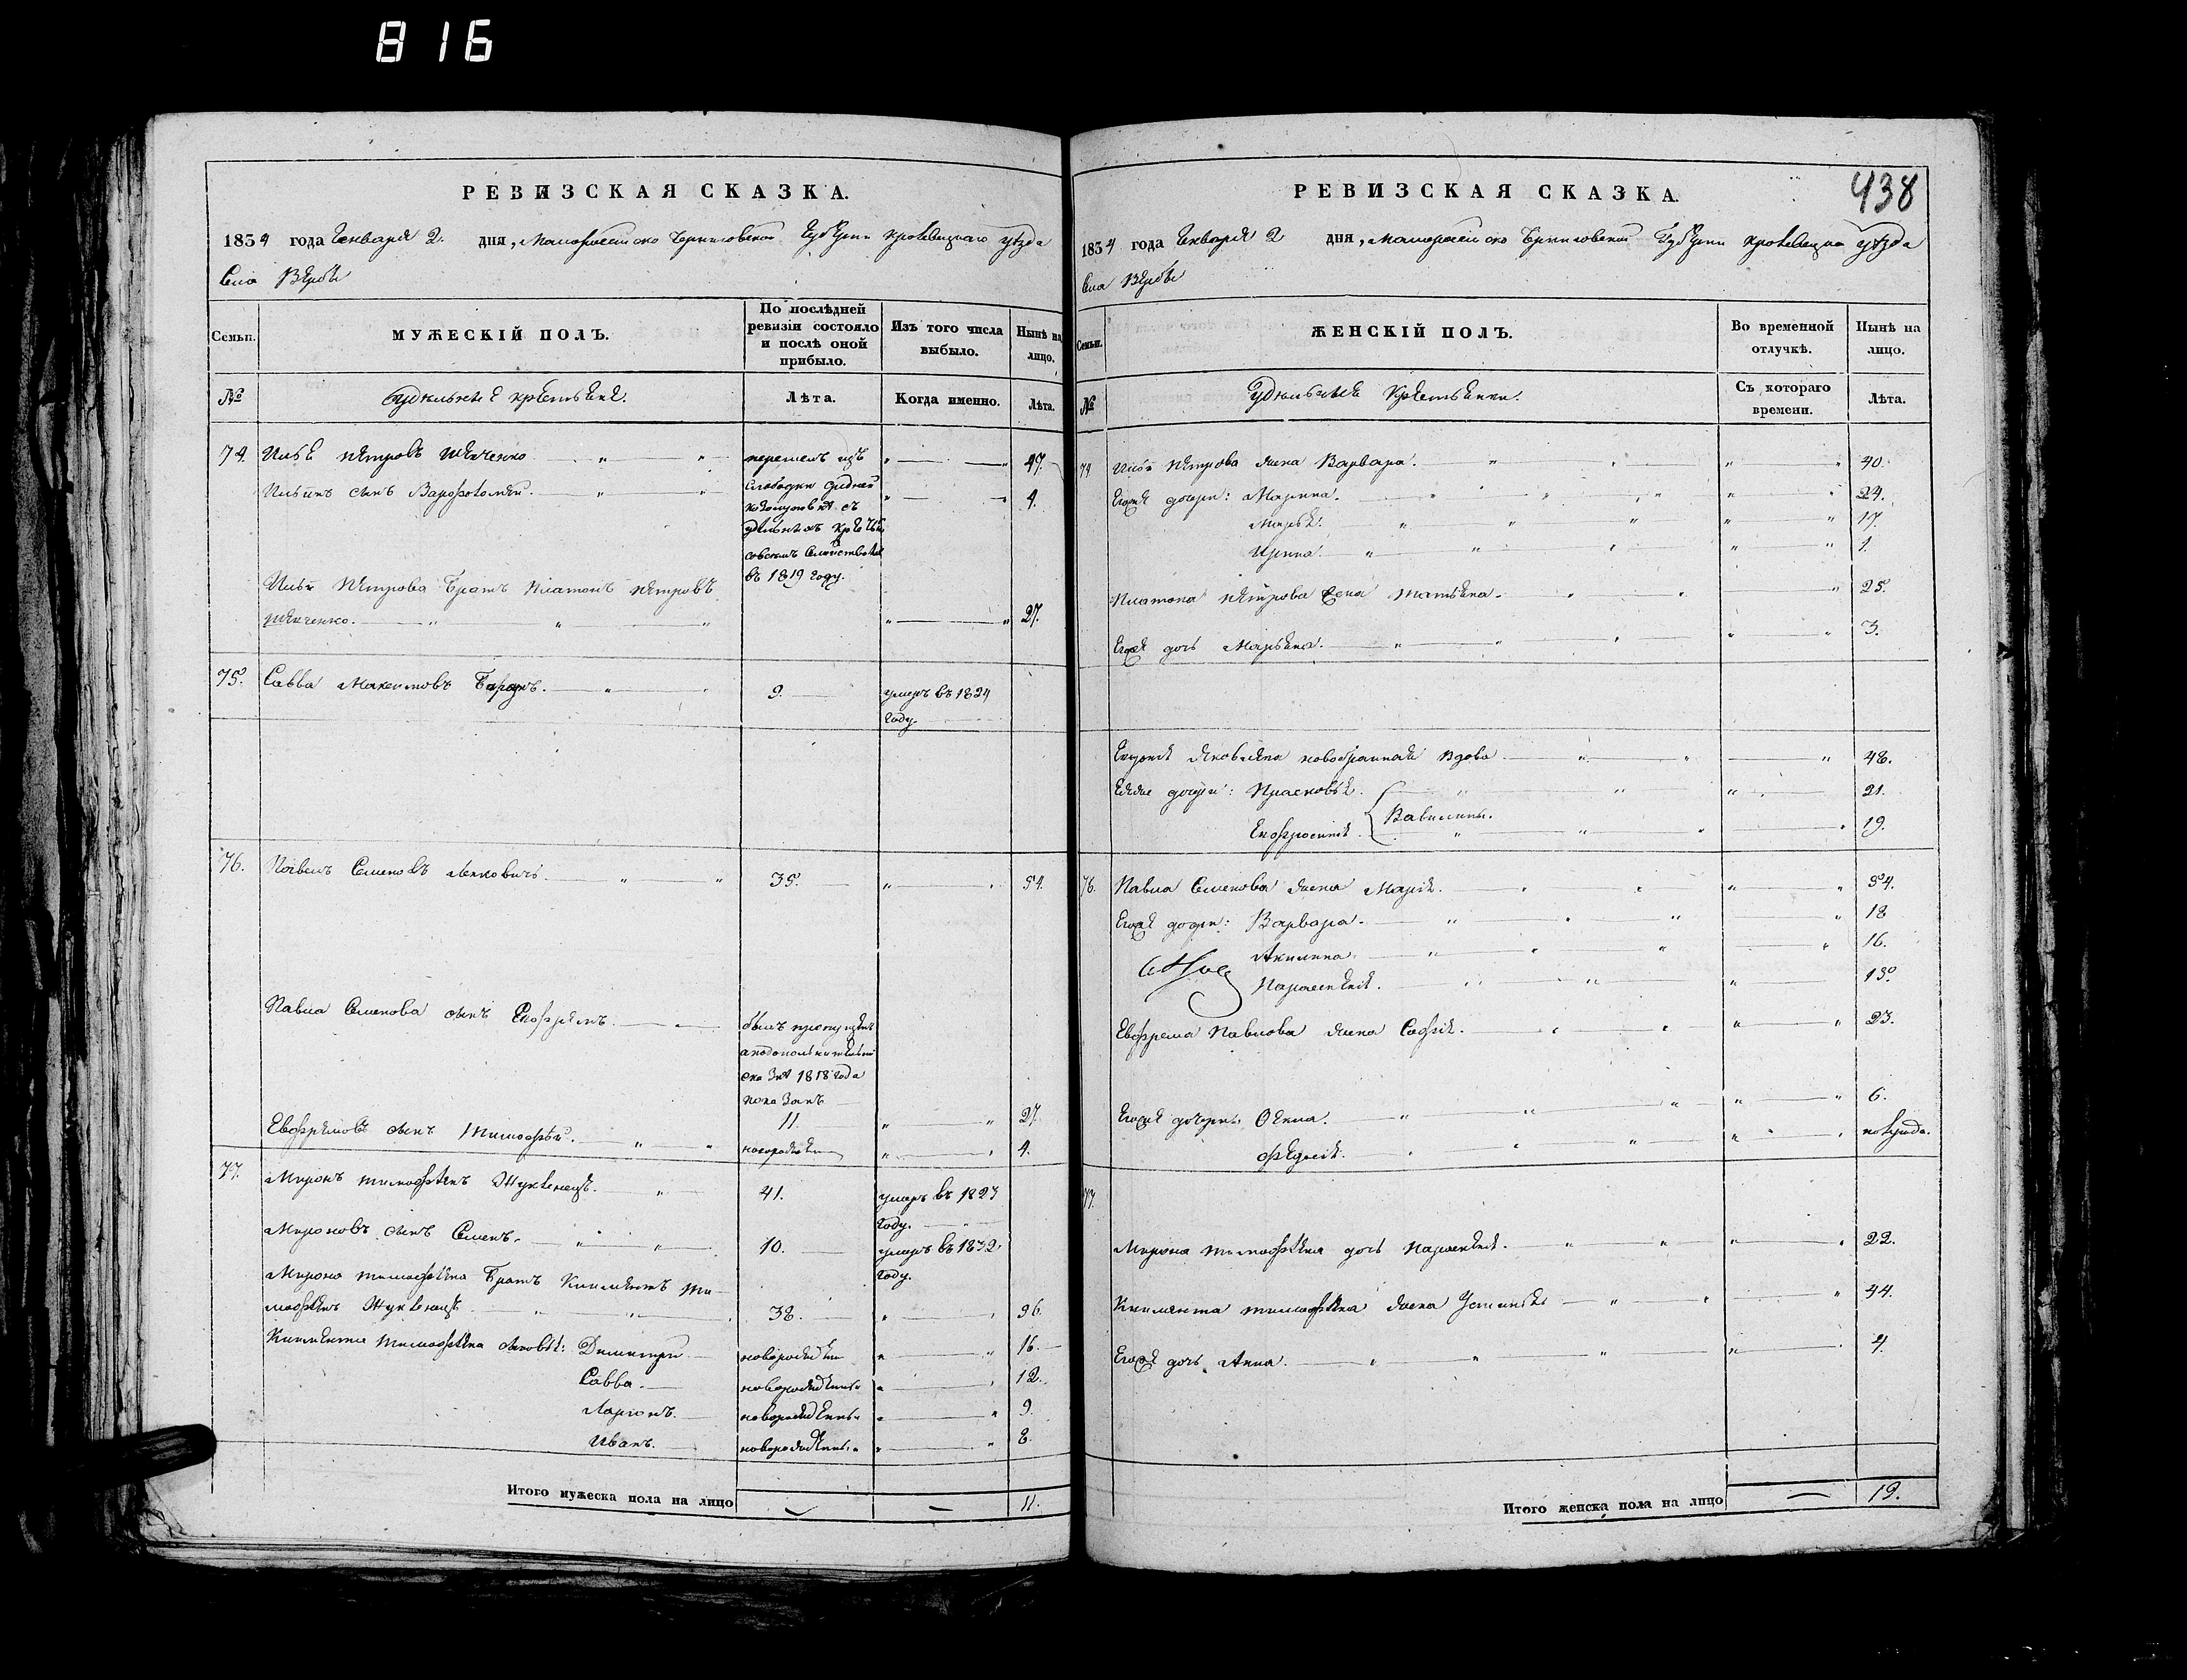 816
РЕВИЗСКАЯ СКАЗКА.
1834 года Генваря 2. дня, Малороссийско Черниговской Губернии Кролевецкаго уезда
Села Вербы
Семьи.
МУЖЕСКІЙ ПОЛЪ.
По послѣдней ревизіи состояло и послѣ оной прибыло.
Изъ того числа выбыло.
Нынѣ на лицо.
№
Удельные крестьяне.
Лѣта.
Когда именно.
Лѣта.
74. Илья Петровъ Шевченко перешелъ изъ 47.
Ильинъ сынъ Варфоломей. слободки 4.
съ
удельныхъ
совсемъ семействомъ
въ 1819 году.
Ильи Петрова Братъ Платонъ Петровъ
Шевченко. 27.
75. Савва Максимовъ 9. умеръ въ 1824
году.
76. Павелъ Семеновъ Левковичь. 35. 54.
Павла Семенова сынъ Евфремъ. былъ пропущенъ
1818 года
показанъ
11. 27.
Евфремовъ сынъ Тимофей. новорожден 4.
77. Миронъ Тимофеевъ 41. умеръ въ 1823
году.
Мироновъ сынъ Семенъ. 10. умеръ въ 1832.
году.
Мирона Тимофеева Братъ Климентъ Ти-
мофеевъ 38. 56.
Климента Тимофеева сыновья: Димитри новорожден 16.
Савва. новорожденны 12.
Ларіонъ. новорожденны 9.
Иванъ. новорожденны 8.
Итого мужеска пола на лицо 11.
438
РЕВИЗСКАЯ СКАЗКА.
1834 года Генваря 2 дня, Малороссийско Черниговской Губернии Кролевецка уезда
Села Вербы
Семьи.
ЖЕНСКІЙ ПОЛЪ.
Во временной отлучкѣ.
Нынѣ на лицо.
№
Удельные Крестьянки.
Съ котораго времени.
Лѣта.
74. Ильи Петрова жена Варвара. 40.
Егожа дочери: Марина. 24.
Марья. 17.
Ирина. 1.
Платона Петрова жена Татьяна. 25.
Егожа дочь Марьяна. 3.
Яковлева вдова 48.
Еяже дочери: Прасковья. 21.
Евфросинія. Вавилины. 19.
76. Павла Семенова жена Марія. 54.
Егожа дочери: Варвара. 18
Акилина. 16.
Парасковія. 13.
Евфрема Павлова жена Софія. 23.
Егожа дочери: 6.
Федосія. полгода.
77.
Мирона Тимофеева дочь 22.
Климента Тимофеева жена Устинья 44.
Егожа дочь Анна. 4.
Итого женска пола на лицо 19.